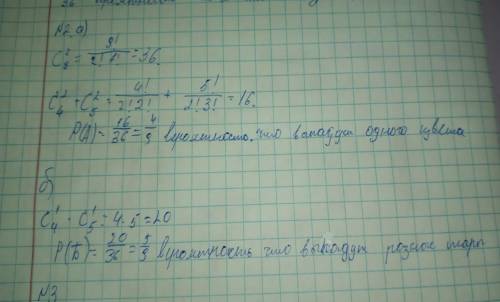 №2 а)
C₉² = 9!/(2!7!) = 36.
C₄² + C₅² = 4!/(2!2!) + 5!/(2!3!) = 16.
P(A) = 16/36 = 4/9 вероятность, что выпадут одного цвета
б)
C₄¹ · C₅¹ = 4·5 = 20
P(Б) = 20/36 = 5/9 вероятность что выпадут разные шары
№3